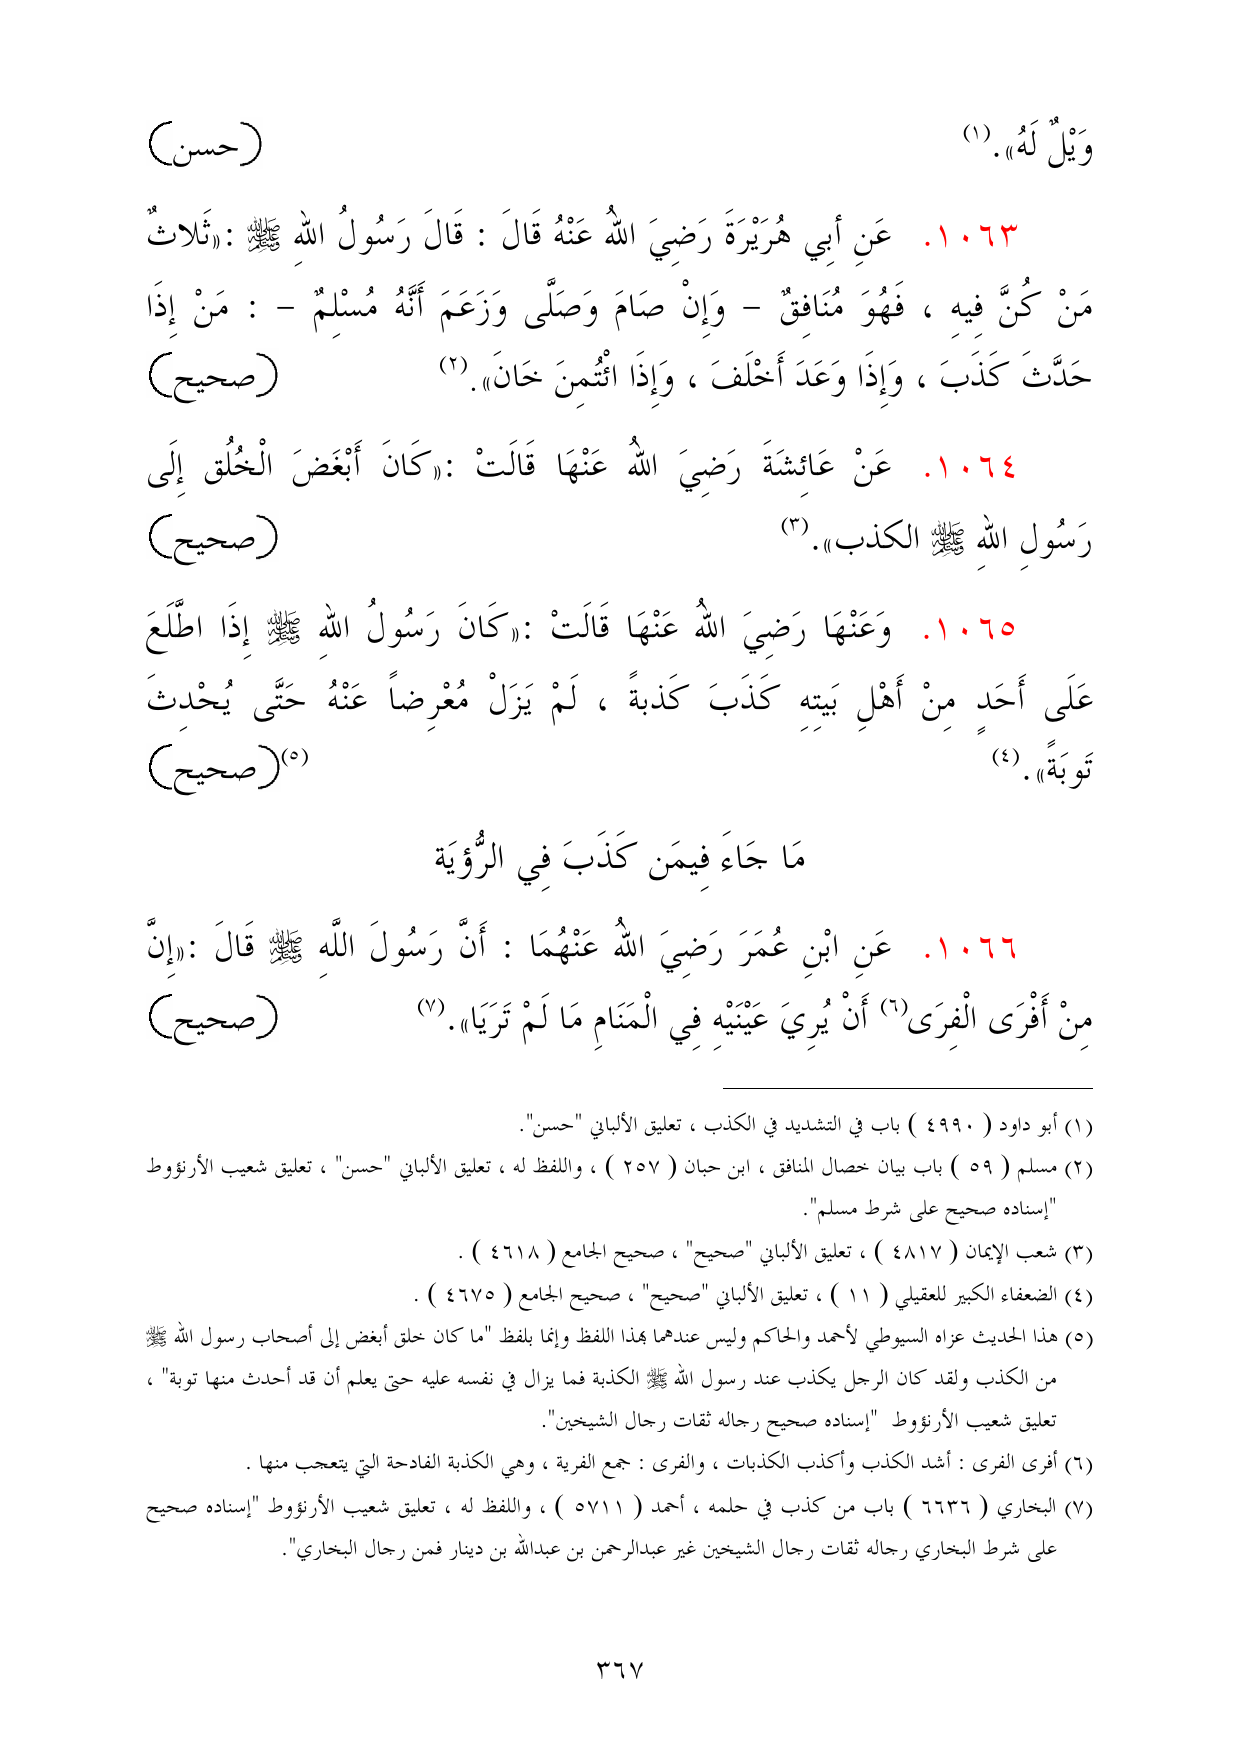 وَيْلٌ لَهُ». (١) (حسن)
١٠٦٣. عَنِ أبِي هُرَيْرَةَ رَضِيَ اللهُ عَنْهُ قَالَ : قَالَ رَسُولُ اللهِ ﷺ :«ثَلاثٌ
مَنْ كُنَّ فِيهِ ، فَهُوَ مُنَافِقٌ – وَإِنْ صَامَ وَصَلَّى وَزَعَمَ أَنَّهُ مُسْلِمٌ – : مَنْ إِذَا
حَدَّثَ كَذَبَ ، وَإِذَا وَعَدَ أَخْلَفَ ، وَإِذَا ائْتُمِنَ خَانَ». (٢) (صحيح)
١٠٦٤. عَنْ عَائِشَةَ رَضِيَ اللهُ عَنْهَا قَالَتْ :«كَانَ أَبْغَضَ الْخُلُق إِلَى
رَسُولِ اللهِ ﷺ الكذب». (٣) (صحيح)
١٠٦٥. وَعَنْهَا رَضِيَ اللهُ عَنْهَا قَالَتْ :«كَانَ رَسُولُ اللهِ ﷺ إِذَا اطَّلَعَ
عَلَى أَحَدٍ مِنْ أَهْلِ بَيتِهِ كَذَبَ كَذبةً ، لَمْ يَزَلْ مُعْرِضاً عَنْهُ حَتَّى يُحْدِثَ
تَوبَةً». (٤) (صحيح)(٥)
مَا جَاءَ فِيمَن كَذَبَ فِي الرُّؤيَة
١٠٦٦. عَنِ ابْنِ عُمَرَ رَضِيَ اللهُ عَنْهُمَا : أَنَّ رَسُولَ اللَّهِ ﷺ قَالَ :«إِنَّ
مِنْ أَفْرَى الْفِرَى(٦) أَنْ يُرِيَ عَيْنَيْهِ فِي الْمَنَامِ مَا لَمْ تَرَيَا». (٧) (صحيح)
(١) أبو داود ( ٤٩٩٠ ) باب في التشديد في الكذب ، تعليق الألباني "حسن".
(٢) مسلم ( ٥٩ ) باب بيان خصال المنافق ، ابن حبان ( ٢٥٧ ) ، واللفظ له ، تعليق الألباني "حسن" ، تعليق شعيب الأرنؤوط
"إسناده صحيح على شرط مسلم".
(٣) شعب الإيمان ( ٤٨١٧ ) ، تعليق الألباني "صحيح" ، صحيح الجامع ( ٤٦١٨ ) .
(٤) الضعفاء الكبير للعقيلي ( ١١ ) ، تعليق الألباني "صحيح" ، صحيح الجامع ( ٤٦٧٥ ) .
(٥) هذا الحديث عزاه السيوطي لأحمد والحاكم وليس عندهما بهذا اللفظ وإنما بلفظ "ما كان خلق أبغض إلى أصحاب رسول الله ﷺ
من الكذب ولقد كان الرجل يكذب عند رسول الله ﷺ الكذبة فما يزال في نفسه عليه حتى يعلم أن قد أحدث منها توبة" ،
تعليق شعيب الأرنؤوط "إسناده صحيح رجاله ثقات رجال الشيخين".
(٦) أفرى الفرى : أشد الكذب وأكذب الكذبات ، والفرى : جمع الفرية ، وهي الكذبة الفادحة التي يتعجب منها .
(٧) البخاري ( ٦٦٣٦ ) باب من كذب في حلمه ، أحمد ( ٥٧١١ ) ، واللفظ له ، تعليق شعيب الأرنؤوط "إسناده صحيح
على شرط البخاري رجاله ثقات رجال الشيخين غير عبدالرحمن بن عبدالله بن دينار فمن رجال البخاري".
٣٦٧